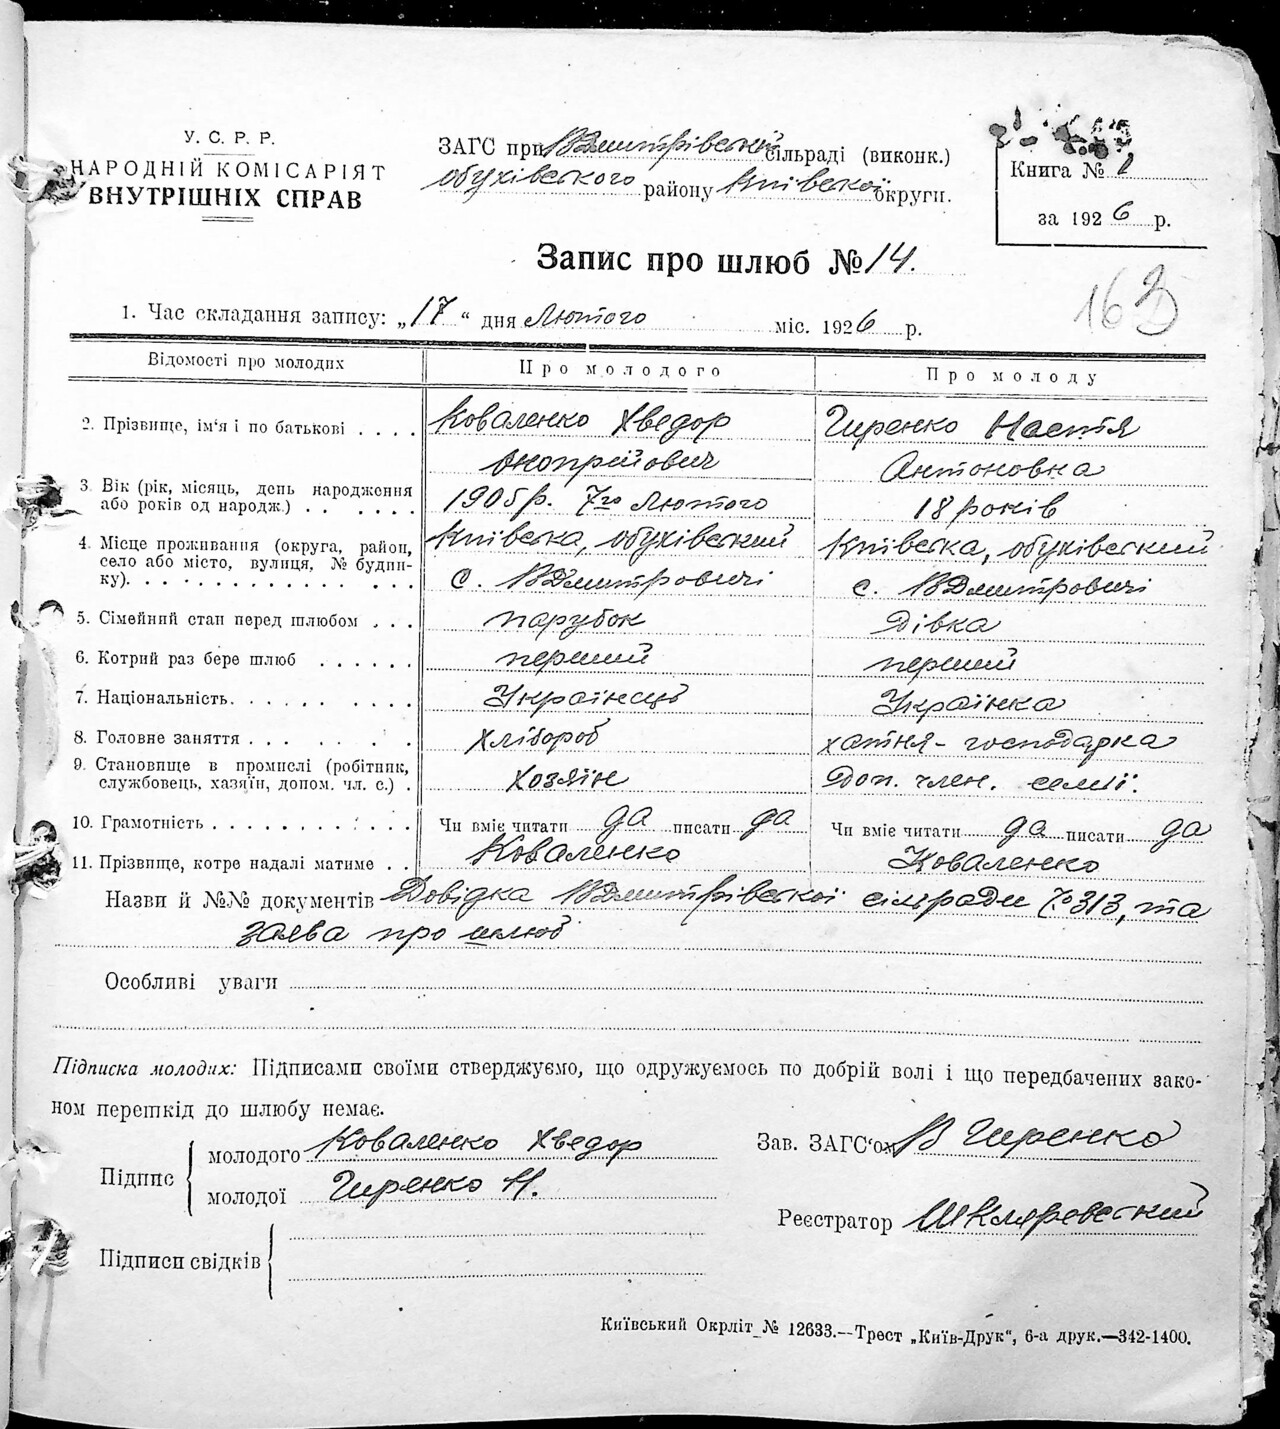 У. С. Р. Р.
НАРОДНІЙ КОМІСАРІЯТ
ВНУТРІШНІХ СПРАВ
ЗАГС при ВДмитрівській сільраді (виконк.)
обухівського району Київської округи.
Книга № 1
за 1926 р.
Запис про шлюб № 14.
163
1. Час складання запису: „17“ дня Лютого міс. 1926 р.
Відомості про молодих Про молодого Про молоду
2. Прізвище, ім'я і по батькові . . . . Коваленко Хведор Гиренко Настя
Онопрійович Антоновна
3. Вік (рік, місяць, день народження
або років од народж.) . . . . . . 1905р. 7го Лютого 18 років
4. Місце проживання (округа, район, Київська, обухівський Київська, обухівський
село або місто, вулиця, № будин-
ку). . . . . . . . . . . . . . с. ВДмитровичі с. ВДмитровичі
5. Сімейний стан перед шлюбом . . . парубок дівка
6. Котрий раз бере шлюб . . . . . . перший перший
7. Національність. . . . . . . . . . Українець Українка
8. Головне заняття . . . . . . . . хлібороб хатня - господарка
9. Становище в промислі (робітник,
службовець, хазяїн, допом. чл. с.) . хозяїн Доп. член. семії.
10. Грамотність . . . . . . . . . . . . Чи вміє читати да писати да Чи вміє читати да писати да
11. Прізвище, котре надалі матиме . . Коваленко Коваленко
Назви й №№ документів Довідка ВДмитрівської сілради № 313, та
заява про шлюб
Особливі уваги
Підписка молодих: Підписами своїми стверджуємо, що одружуємось по добрій волі і що передбачених зако-
ном перешкід до шлюбу немає.
Підпис молодого Коваленко Хведор
молодої Гиренко Н.
Зав. ЗАГС'ом В Гиренко
Реєстратор Шкляревський
Підписи свідків
Київський Окрліт № 12633.—Трест „Київ-Друк“, 6-а друк.—342-1400.